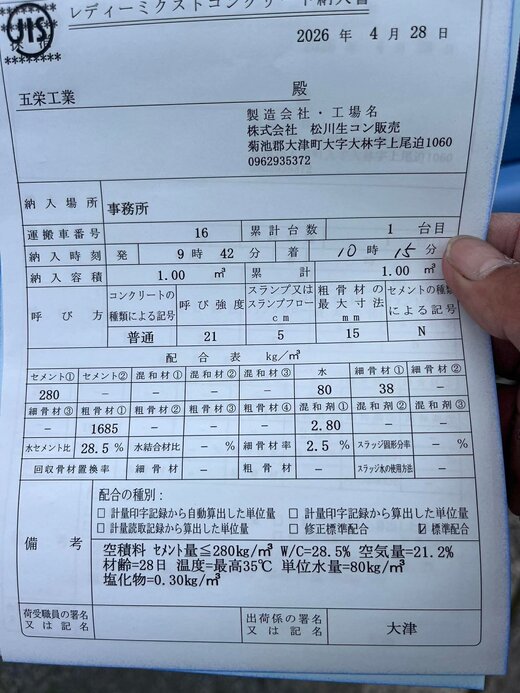 レディーミクストコンクリート納入書
JIS
********
2026 年 4 月 28 日
五栄工業 殿
製造会社・工場名
株式会社 松川生コン販売
菊池郡大津町大字大林字上尾迫1060
0962935372
納入場所 事務所
運搬車番号 16 累計台数 1 台目
納入時刻 発 9 時 42 分 着 10 時 15 分
納入容積 1.00 m³ 累計 1.00 m³
呼び方 コンクリートの種類による記号 呼び強度 スランプ又はスランプフロー cm 粗骨材の最大寸法 mm セメントの種類による記号
普通 21 5 15 N
配合表 kg/m³
セメント① セメント② 混和材① 混和材② 混和材③ 水 細骨材① 細骨材②
280 － － － － 80 38 －
細骨材③ 粗骨材① 粗骨材② 粗骨材③ 粗骨材④ 混和剤① 混和剤② 混和剤③
－ 1685 － － － 2.80 － －
水セメント比 28.5 % 水結合材比 － % 細骨材率 2.5 % スラッジ固形分率 － %
回収骨材置換率 細骨材 － 粗骨材 － スラッジ水の使用方法 －
備考 配合の種別：
□ 計量印字記録から自動算出した単位量 □ 計量印字記録から算出した単位量
□ 計量読取記録から算出した単位量 □ 修正標準配合 ☑ 標準配合
空積料 セメント量≦280kg/m³ W/C=28.5% 空気量=21.2%
材齢=28日 温度=最高35℃ 単位水量=80kg/m³
塩化物=0.30kg/m³
荷受職員の署名又は記名 出荷係の署名又は記名 大津